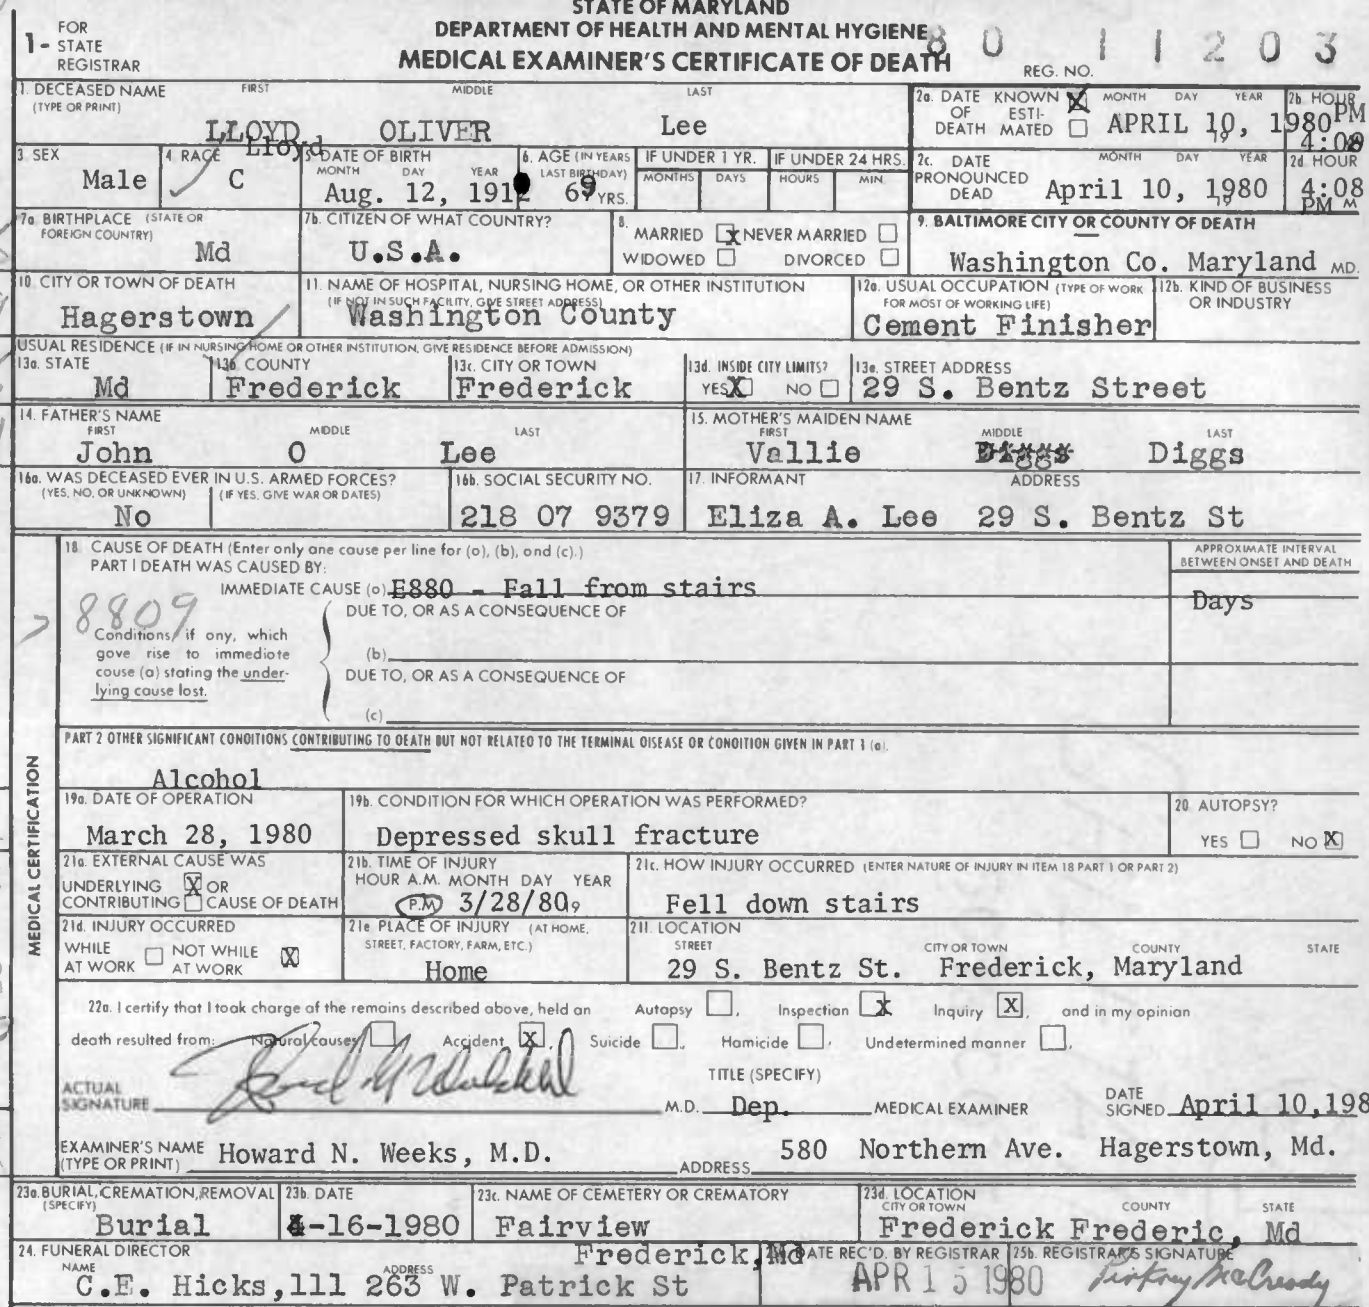 STATE OF MARYLAND
DEPARTMENT OF HEALTH AND MENTAL HYGIENE
MEDICAL EXAMINER'S CERTIFICATE OF DEATH
1- FOR STATE REGISTRAR
REG. NO. 80 11203
1. DECEASED NAME (TYPE OR PRINT) FIRST MIDDLE LAST
LLOYD OLIVER Lee
Lloyd
2a. DATE OF DEATH KNOWN X ESTIMATED MONTH DAY YEAR APRIL 10, 1980
2b. HOUR PM 4:08
3. SEX Male
4. RACE C
5. DATE OF BIRTH MONTH DAY YEAR Aug. 12, 191
6. AGE (IN YEARS LAST BIRTHDAY) YRS.
IF UNDER 1 YR. MONTHS DAYS
IF UNDER 24 HRS. HOURS MIN.
2c. DATE PRONOUNCED DEAD MONTH DAY YEAR April 10, 1980
2d. HOUR 4:08 PM M
7a. BIRTHPLACE (STATE OR FOREIGN COUNTRY) Md
7b. CITIZEN OF WHAT COUNTRY? U.S.A.
8. MARRIED X NEVER MARRIED
WIDOWED DIVORCED
9. BALTIMORE CITY OR COUNTY OF DEATH
Washington Co. Maryland MD.
10. CITY OR TOWN OF DEATH Hagerstown
11. NAME OF HOSPITAL, NURSING HOME, OR OTHER INSTITUTION
(IF NOT IN SUCH FACILITY, GIVE STREET ADDRESS)
Washington County
12a. USUAL OCCUPATION (TYPE OF WORK FOR MOST OF WORKING LIFE)
Cement Finisher
12b. KIND OF BUSINESS OR INDUSTRY
USUAL RESIDENCE (IF IN NURSING HOME OR OTHER INSTITUTION, GIVE RESIDENCE BEFORE ADMISSION)
13a. STATE Md
13b. COUNTY Frederick
13c. CITY OR TOWN Frederick
13d. INSIDE CITY LIMITS? YES X NO
13e. STREET ADDRESS 29 S. Bentz Street
14. FATHER'S NAME FIRST MIDDLE LAST
John O Lee
15. MOTHER'S MAIDEN NAME FIRST MIDDLE LAST
Vallie Diggs Diggs
16a. WAS DECEASED EVER IN U.S. ARMED FORCES?
(YES, NO, OR UNKNOWN) (IF YES, GIVE WAR OR DATES)
No
16b. SOCIAL SECURITY NO. 218 07 9379
17. INFORMANT ADDRESS
Eliza A. Lee 29 S. Bentz St
MEDICAL CERTIFICATION
18. CAUSE OF DEATH (Enter only one cause per line for (a), (b), and (c).)
PART I DEATH WAS CAUSED BY:
APPROXIMATE INTERVAL BETWEEN ONSET AND DEATH
IMMEDIATE CAUSE (a) E880 - Fall from stairs
Days
8809
DUE TO, OR AS A CONSEQUENCE OF
Conditions, if any, which
gave rise to immediate
cause (a) stating the under-
lying cause last.
(b)
DUE TO, OR AS A CONSEQUENCE OF
(c)
PART 2 OTHER SIGNIFICANT CONDITIONS CONTRIBUTING TO DEATH BUT NOT RELATED TO THE TERMINAL DISEASE OR CONDITION GIVEN IN PART 1 (a).
Alcohol
19a. DATE OF OPERATION March 28, 1980
19b. CONDITION FOR WHICH OPERATION WAS PERFORMED?
Depressed skull fracture
20. AUTOPSY? YES NO X
21a. EXTERNAL CAUSE WAS
UNDERLYING X OR
CONTRIBUTING CAUSE OF DEATH
21b. TIME OF INJURY
HOUR A.M. MONTH DAY YEAR
P.M. 3/28/80
21c. HOW INJURY OCCURRED (ENTER NATURE OF INJURY IN ITEM 18 PART 1 OR PART 2)
Fell down stairs
21d. INJURY OCCURRED
WHILE AT WORK NOT WHILE AT WORK X
21e PLACE OF INJURY (AT HOME, STREET, FACTORY, FARM, ETC.)
Home
21f. LOCATION STREET CITY OR TOWN COUNTY STATE
29 S. Bentz St. Frederick, Maryland
22a. I certify that I took charge of the remains described above, held an Autopsy , Inspection X Inquiry X , and in my opinion
death resulted from: Natural causes , Accident X , Suicide , Homicide , Undetermined manner .
ACTUAL SIGNATURE M.D.
TITLE (SPECIFY) Dep. MEDICAL EXAMINER
DATE SIGNED April 10,198
EXAMINER'S NAME (TYPE OR PRINT) Howard N. Weeks, M.D.
ADDRESS 580 Northern Ave. Hagerstown, Md.
23a. BURIAL, CREMATION, REMOVAL (SPECIFY) Burial
23b. DATE 4-16-1980
23c. NAME OF CEMETERY OR CREMATORY Fairview
23d. LOCATION CITY OR TOWN COUNTY STATE
Frederick Frederic, Md
24. FUNERAL DIRECTOR NAME ADDRESS
C.E. Hicks,lll 263 W. Patrick St
Frederick, Md
25a. DATE REC'D. BY REGISTRAR APR 15 1980
25b. REGISTRAR'S SIGNATURE